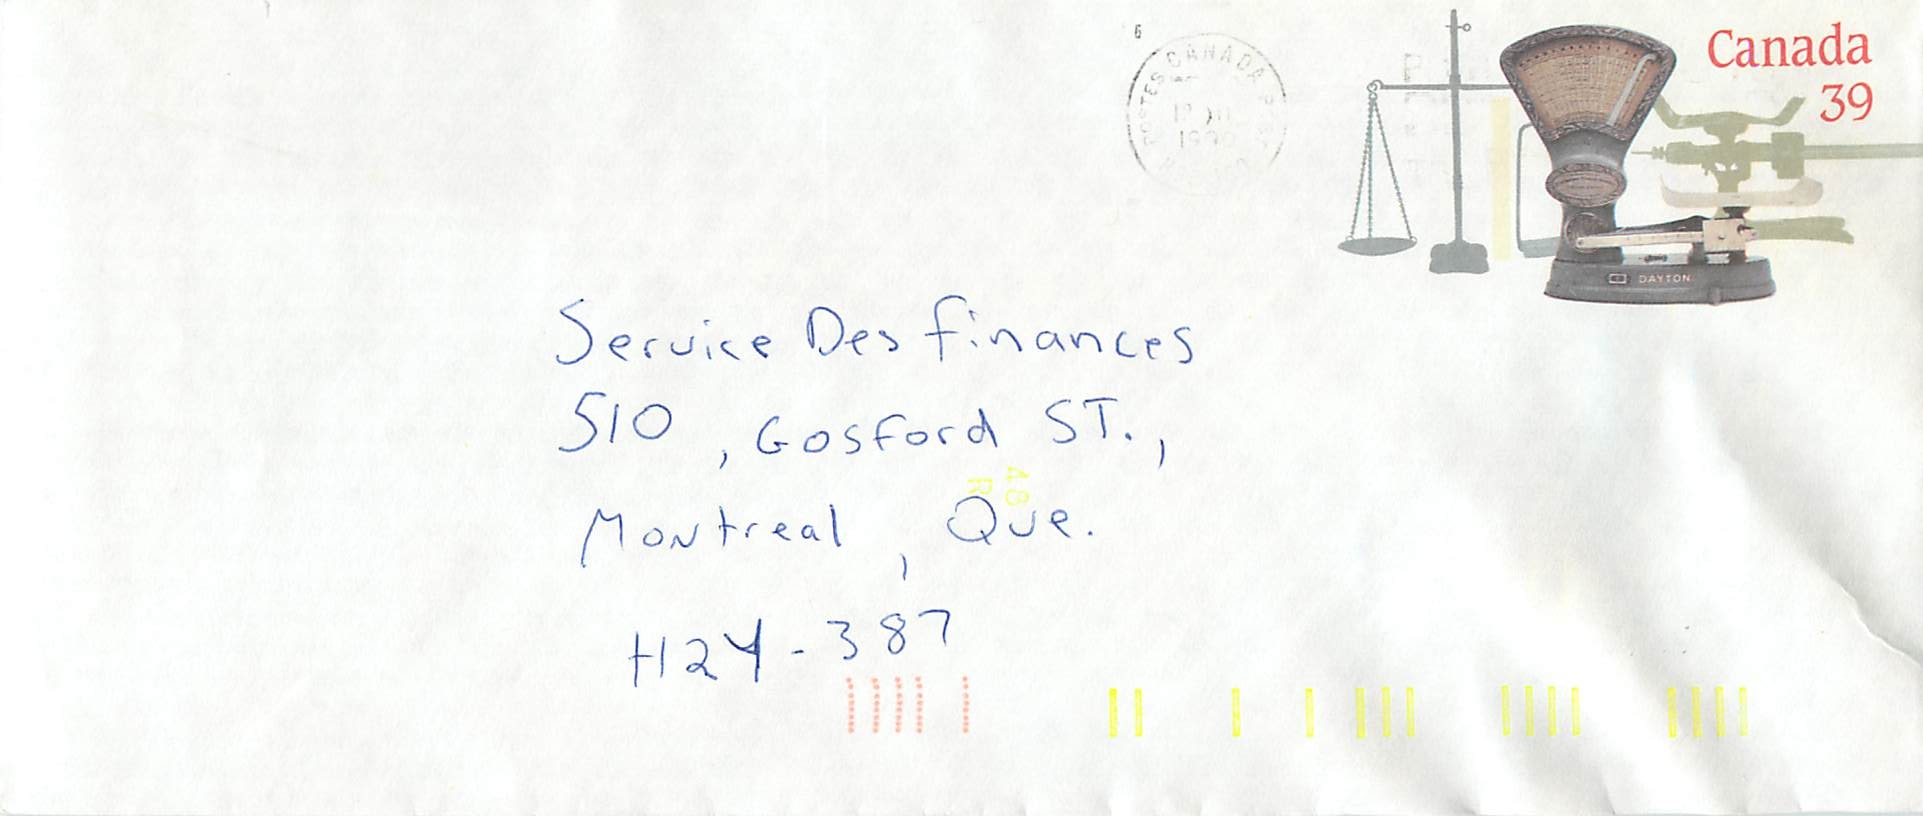 Canada
39
6
POSTES CANADA
1990
DAYTON
Service Des finances
510, Gosford ST.,
48
R
Montreal, Que.
H2Y-387